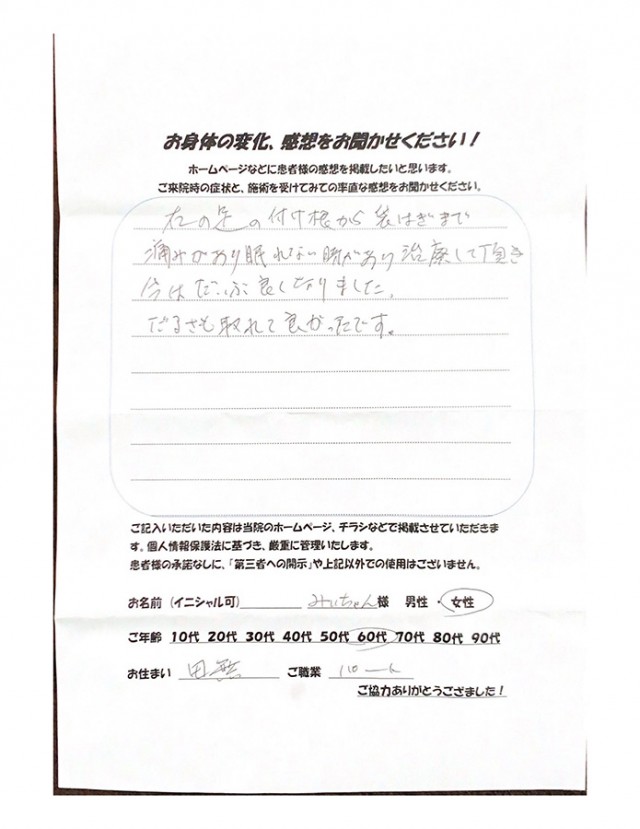 お身体の変化、感想をお聞かせください！
ホームページなどに患者様の感想を掲載したいと思います。
ご来院時の症状と、施術を受けてみての率直な感想をお聞かせください。
右の足の付け根から裏はぎまで
痛みがあり眠れない時があり治療して頂き
今はだいぶ良くなりました。
だるさも取れて良かったです。
ご記入いただいた内容は当院のホームページ、チラシなどで掲載させていただきま
す。個人情報保護法に基づき、厳重に管理いたします。
患者様の承諾なしに、「第三者への開示」や上記以外での使用はございません。
お名前（イニシャル可） みいちゃん様 男性・女性
ご年齢 10代 20代 30代 40代 50代 60代 70代 80代 90代
お住まい 田無 ご職業 パート
ご協力ありがとうござました！